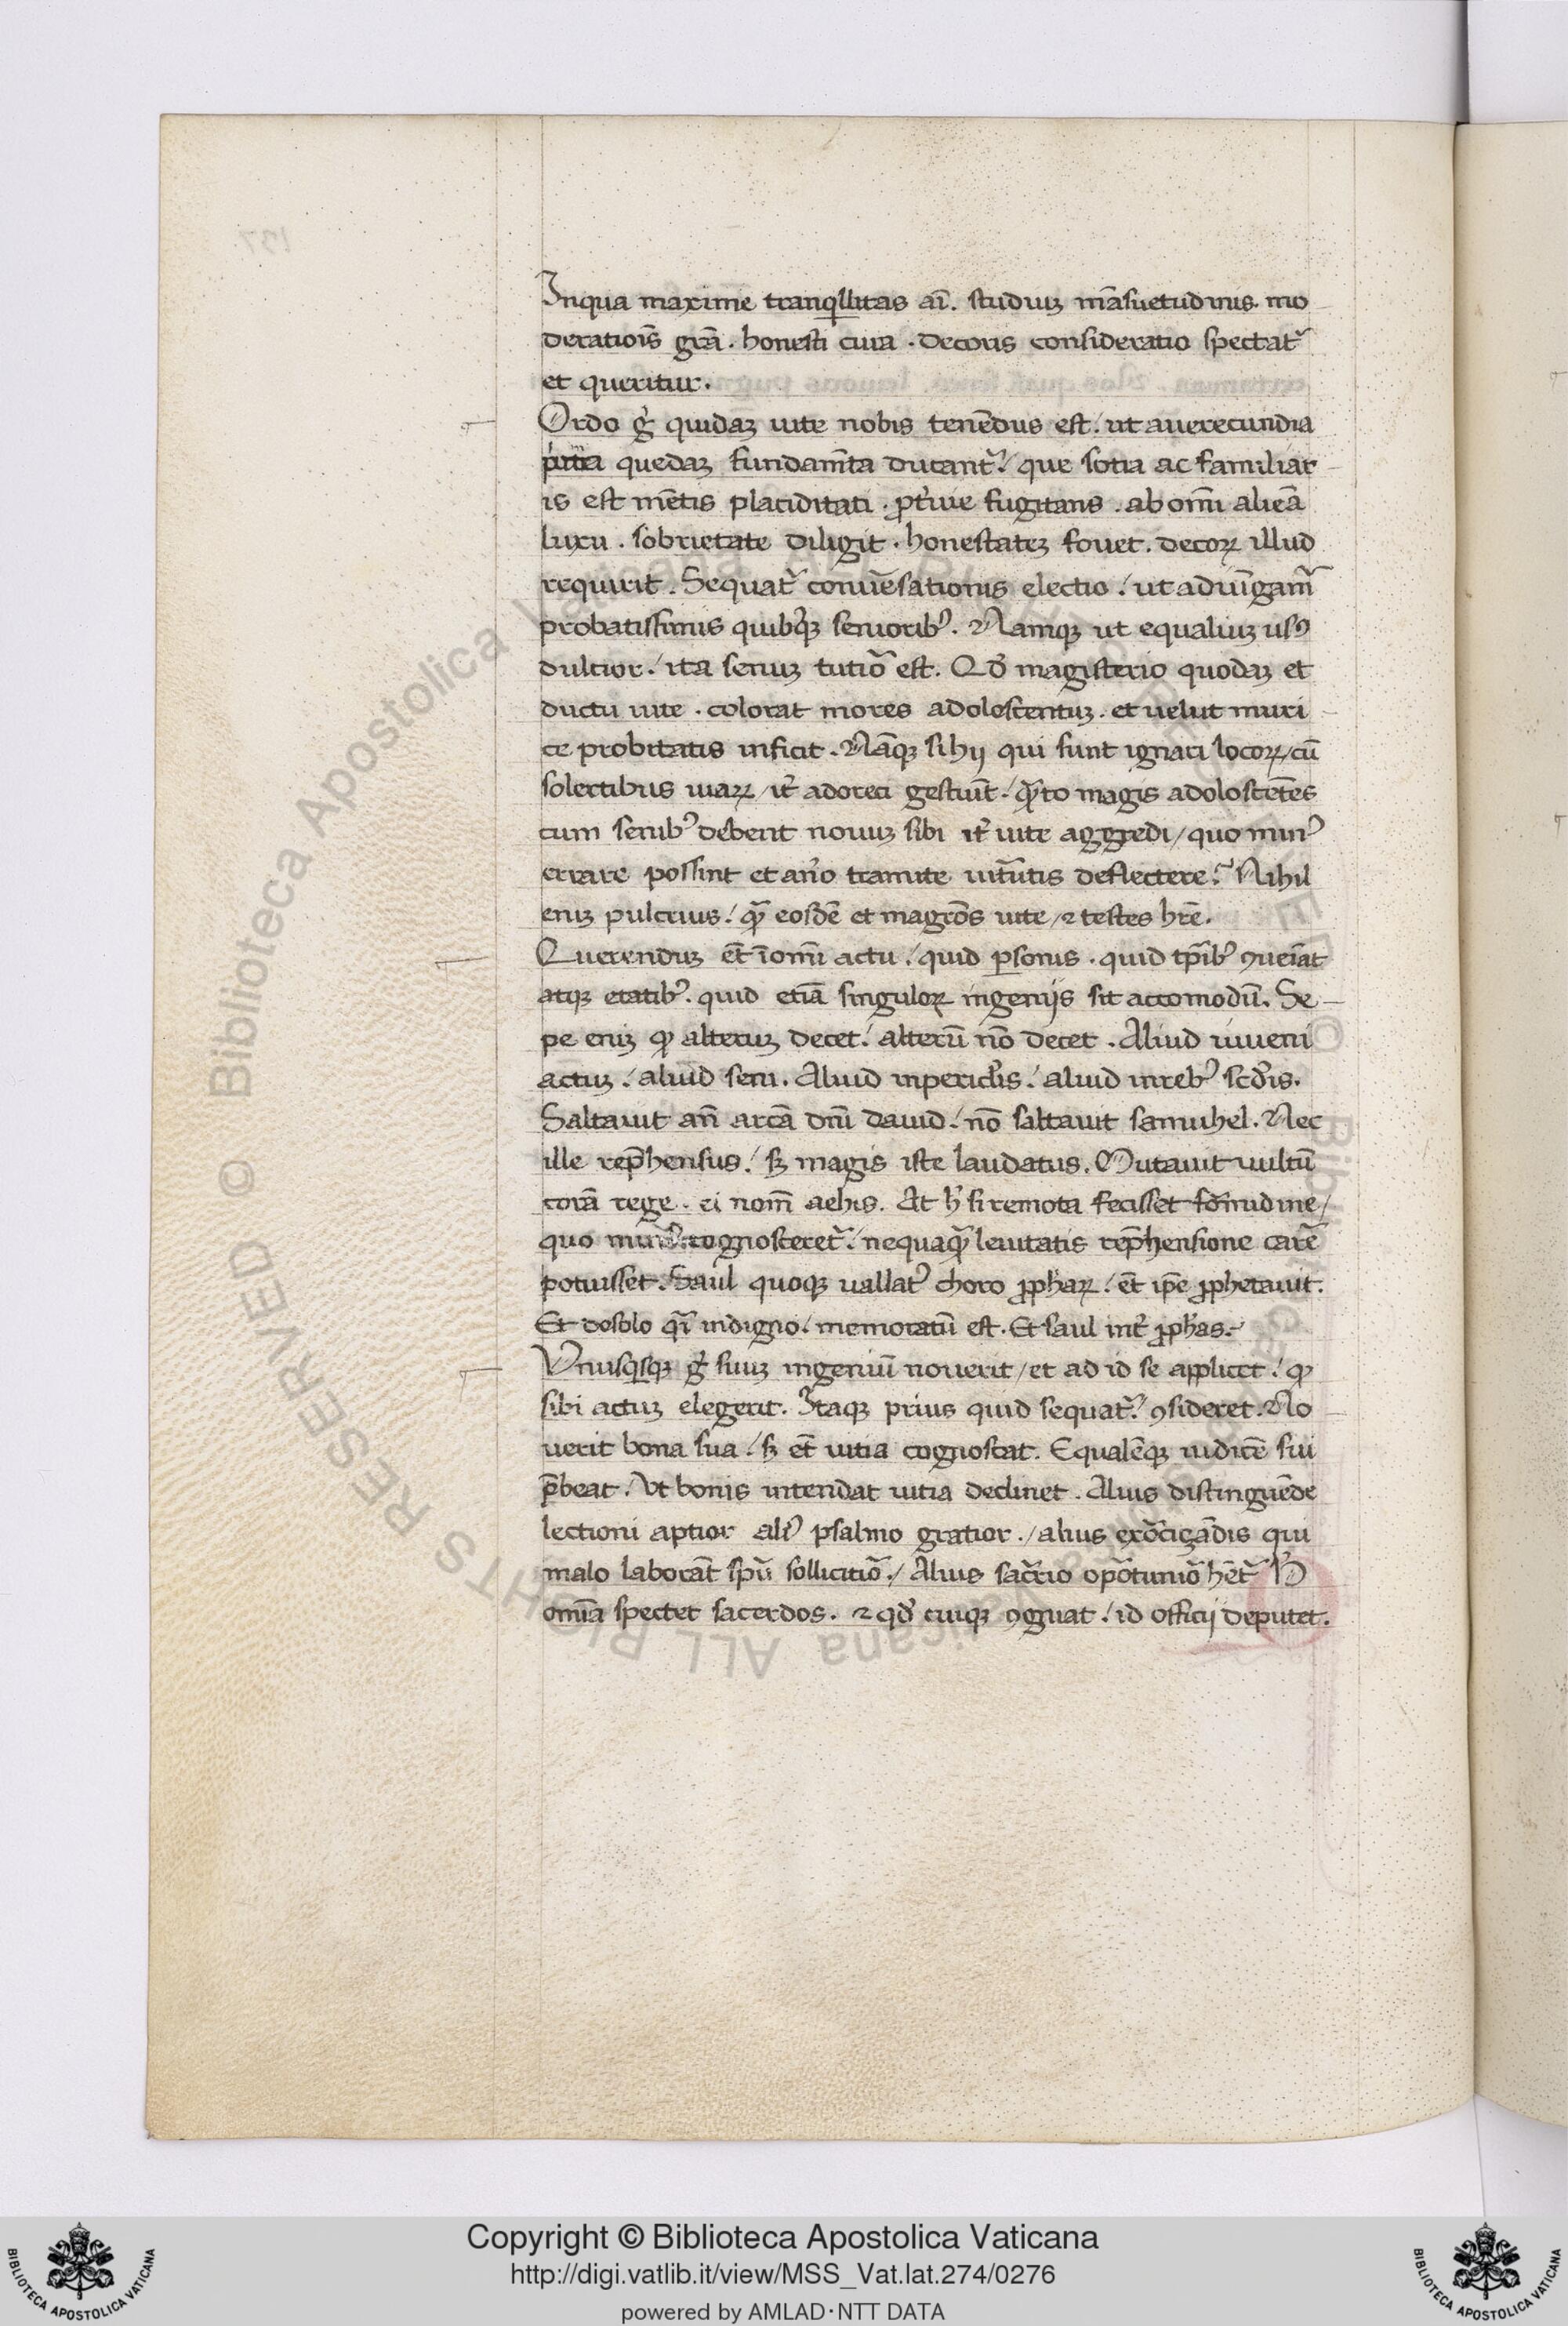 Inqua maxime tranqͥllitas aı̄. studiuꝫ mā̄suetudinis. mo
deratiōis grā̄. honesti cura. decoris consideratio spectatᷣ
et queritur.
Ordo gͦ quidaꝫ uite nobis tenēdus est. ut auerecundia
quedaꝫ fundam̄ta ducantᷣ. que sotia ac familiar
is est mētis placiditati. ꝓtͥue fugitans. ab om̄i aliēa
luxu. sobrietate diligit. honestateꝫ fouet. decoꝝ illud
requirit. Sequatᷣ conuēsationis electio. ut adiūgamᷣ
probatissimis quibꝰqꝫ senioribꝰ. Namqꝫ ut equaliuꝫ usꝰ
dulcior. ita senuꝫ tutioᷣ est. Qd̄ magisterio quodaꝫ et
ductu uite. colorat mores adolescentuꝫ. et uelut muri
ce probitatis inficit. Nāqꝫ sihij qui sunt ignari locoꝝ/ cū
solertibus uiaꝝ/ itᷣ adoreri gestiūt. qͣ̄to magis adolescētes
cum senibꝰ debent nouuꝫ sibi itᷣ uite aggredi/ quo minꝰ
errare possint et auͦo tramite uirtutis deflectere. Nihil
eniꝫ pulcrius. qͣ̄ eosdē et magrōs uite/ ⁊ testes hr̄e.
Querenduꝫ ēt ı̄om̄i actu. quid ꝑsonis. quid tp̄ibꝰ ꝯueı̄at
atqꝫ etatibꝰ. quid etiā singuloꝝ ingeniis sit accomodū. Se
pe eniꝫ qͩ alteruꝫ decet. alterū nō decet. Aliud iuueni
actuꝫ. aliud seni. Aliud inpericl̄is. aliud inrebꝰ scd̄is.
Saltauit an̄ arcā dn̄i dauid. nō saltauit samuhel. Nec
ille rep̄hensus. sꝫ magis iste laudatus. Mutauit uultū
corā rege. ei nom̄ achis. At hͦ si remota fecisset foᷣmidine/
quo minꝰ cognosceretᷣ. nequaqͣ̄ leuitatis rep̄hensione carēᷣ
potuisset. Saul quoqꝫ uallatꝰ choro ꝓphaꝝ. ēt ip̄e ꝓphetauit.
Et desolo qͣı̄ indigno. memoratū est. Et saul intᷣ ꝓphas.
Vnusqͥsqꝫ gͦ suuꝫ ingeniū nouerit/ et ad id se applicet. qͩ
sibi actuꝫ elegerit. Itaqꝫ prius quid sequatᷣ. ꝯsideret. No
uerit bona sua. sꝫ ēt uitia cognoscat. Equalēqꝫ iudicē sui
p̄beat. Vt bonis intendat uitia declinet. Alius distinguēde
lectioni aptior aliꝰ psalmo gratior./ alius exoᷣciçādis qui
malo laborāt spū sollicitioᷣ./ Alius sacᷣrio opoᷣtunioᷣ hētᷣ
om̄ia spectet sacerdos. ⁊ qd̄ cuiqꝫ ꝯgruat. id officij deputet.
Copyright © Biblioteca Apostolica Vaticana
http://digi.vatlib.it/view/MSS_Vat.lat.274/0276
powered by AMLAD·NTT DATA